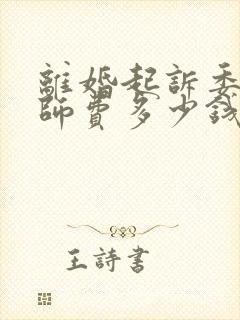 離婚起訴委
師費多少錢
王詩書